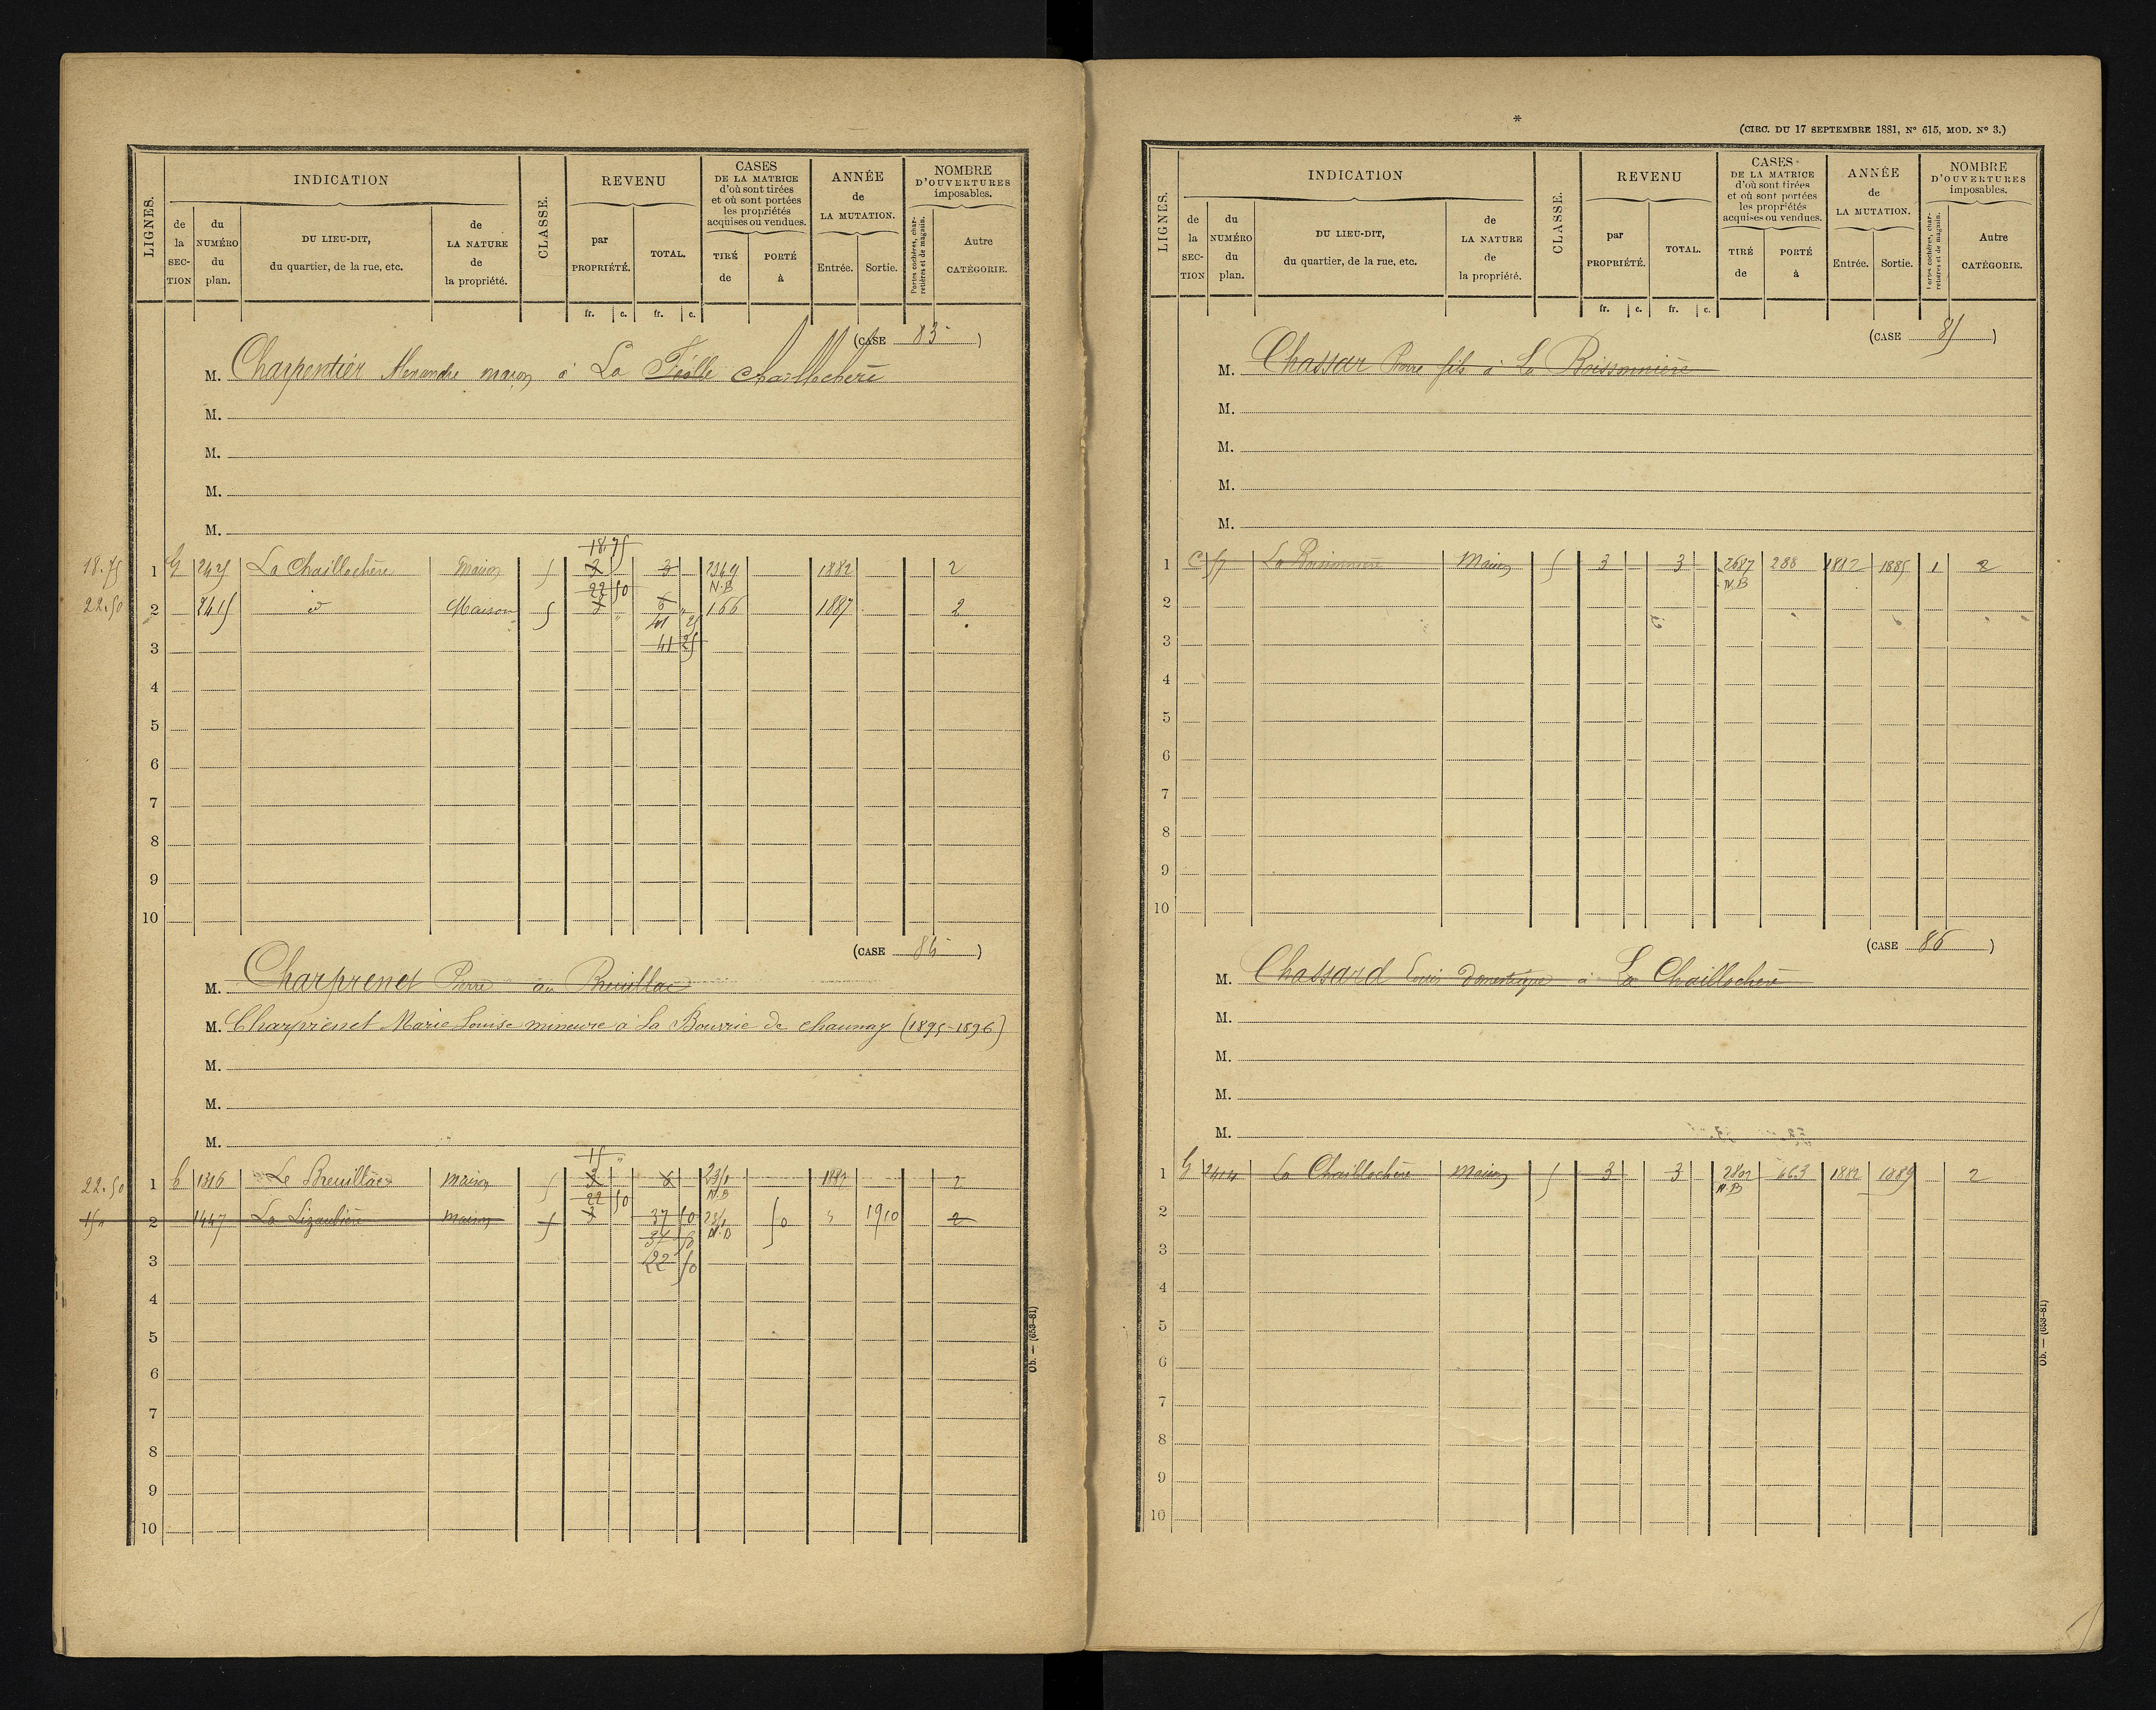 LIGNES.
INDICATION
de la SEC-TION
du NUMÉRO du plan.
DU LIEU-DIT, du quartier, de la rue, etc.
de LA NATURE de la propriété.
CLASSE.
REVENU
par PROPRIÉTÉ.
TOTAL.
CASES DE LA MATRICE d'où sont tirées et où sont portées les propriétés acquises ou vendues.
TIRÉ de
PORTÉ à
ANNÉE de LA MUTATION.
Entrée.
Sortie.
NOMBRE D'OUVERTURES imposables.
Portes cochères, charretières et de magasin.
Autre CATÉGORIE.
fr. c. fr. c.
(CASE 83 )
M. Charpentier Alexandre maçon à La Chaillochere
M.
M.
M.
M.
18.75
18.75 1 G 2425 La Chaillochère Maison 5 3 3 2369 N.B 1882 2
22 50
22.50 2 2415 d Maison 5 3 " 6 " 166 1887 2
41 25
3 41 25
4
5
6
7
8
9
10
(CASE 84 )
M. Charprenet Pierre au Breuillac
M. Charprenet Marie Louise mineure à La Bourrie de chaunay (1895-1896)
M.
M.
M.
15 "
22.50 1 1316 Le Breuillac maison 5 3 6 N.B 2
22 50
2 1447 La Lizaubière maison 5 3 37 50 N.B 50 1910 2
37 50
3 22 50
4
5
6
7
8
9
10
Ob. — (653-81)
*
(CIRC. DU 17 SEPTEMBRE 1881, N° 615, MOD. N° 3.)
LIGNES.
INDICATION
de la SEC-TION
du NUMÉRO du plan.
DU LIEU-DIT, du quartier, de la rue, etc.
de LA NATURE de la propriété.
CLASSE.
REVENU
par PROPRIÉTÉ.
TOTAL.
CASES DE LA MATRICE d'où sont tirées et où sont portées les propriétés acquises ou vendues.
TIRÉ de
PORTÉ à
ANNÉE de LA MUTATION.
Entrée.
Sortie.
NOMBRE D'OUVERTURES imposables.
Portes cochères, charretières et de magasin.
Autre CATÉGORIE.
fr. c. fr. c.
(CASE 85 )
M. Chassar Pierre fils à La Boissonnière
M.
M.
M.
M.
1 C 57 La Boissonnière Maison 5 3 3 2687 N.B 288 1882 1885 1 2
2
3
4
5
6
7
8
9
10
(CASE 86 )
M. Chassard Louis domestique à La Chaillochère
M.
M.
M.
M.
1 G 2414 La Chaillochère Maison 5 3 3 N.B 663 1882 1889 2
2
3
4
5
6
7
8
9
10
Ob. — (653-81)